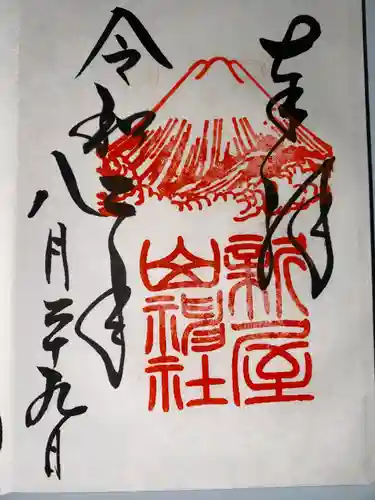 奉拝
新屋
山神社
令和二年
八月二十九日